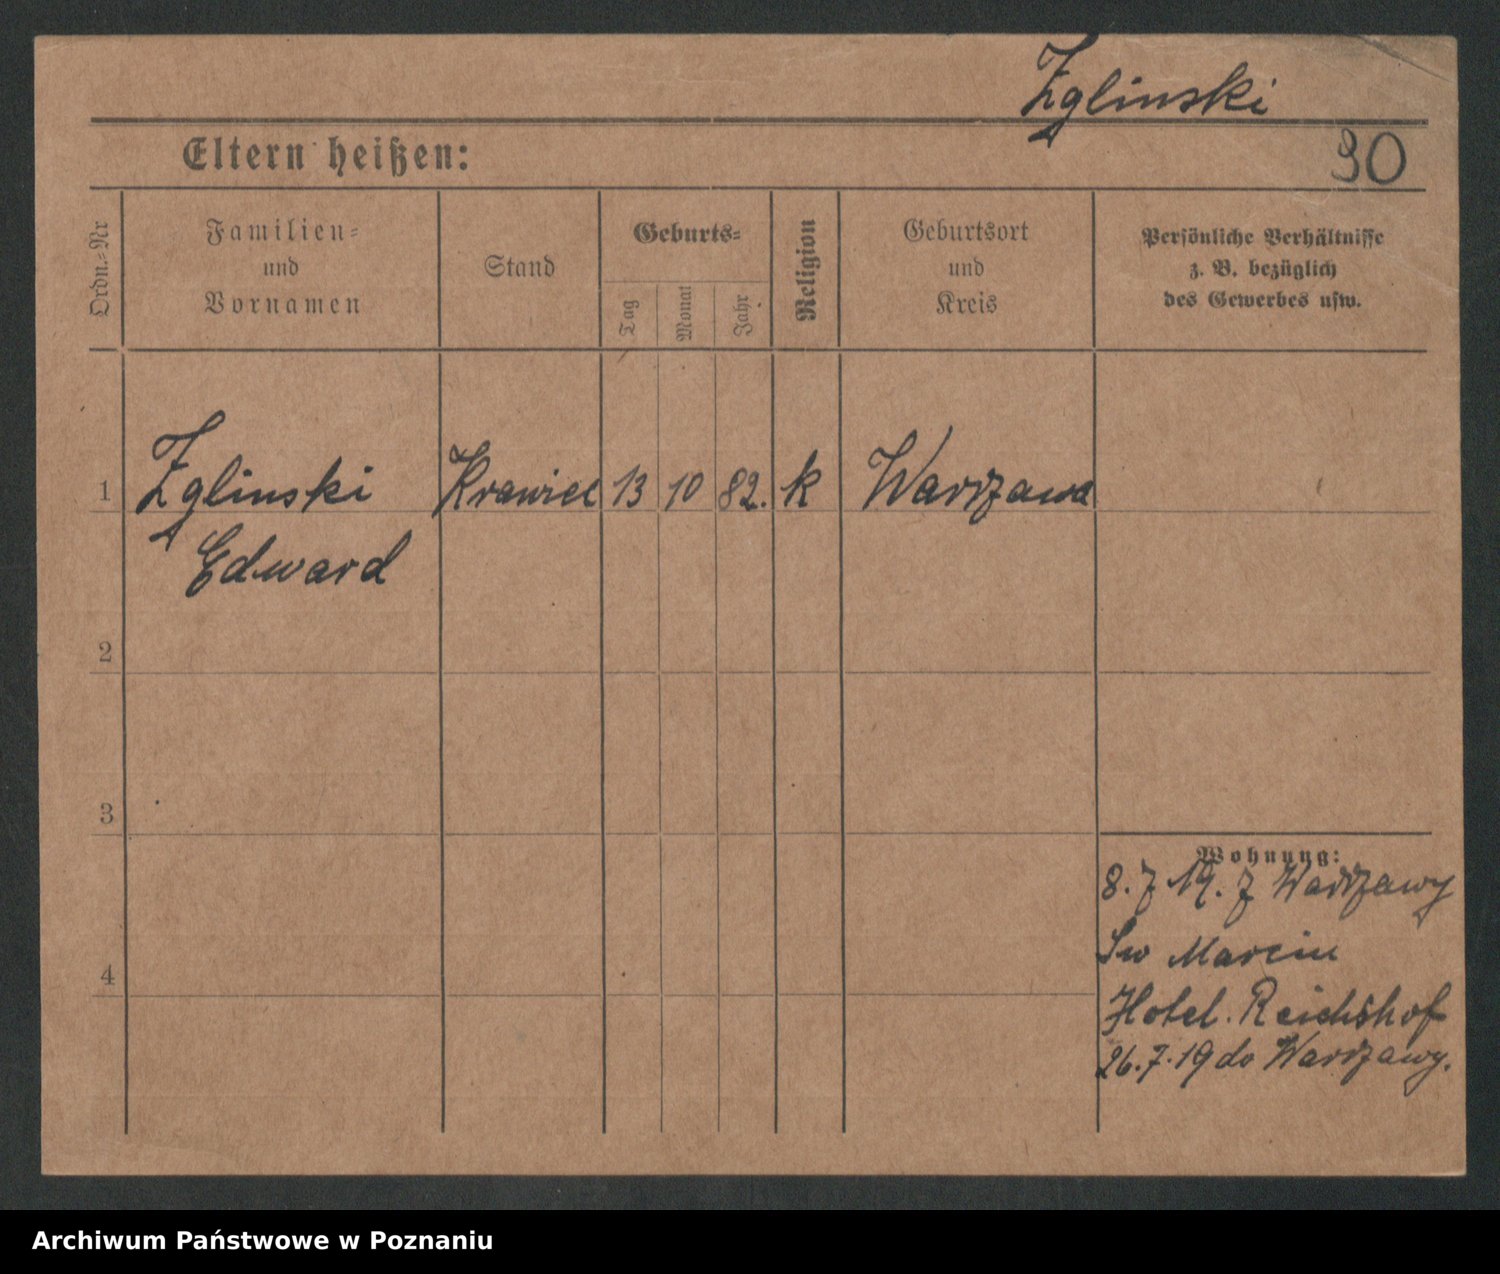 Zglinski
Eltern heißen:
30
Ordn.-Nr
Familien-
und
Vornamen
Stand
Geburts-
Tag
Monat
Jahr
Religion
Geburtsort
und
Kreis
Persönliche Verhältnisse
z. B. bezüglich
des Gewerbes usw.
1 Zglinski Krawiec 13 10 82. k Warszawa
Edward
2
3
4
Wohnung:
8.7.19. z Warszawy
Św Marcin
Hotel. Reichshof
26.7.19 do Warszawy.
Archiwum Państwowe w Poznaniu